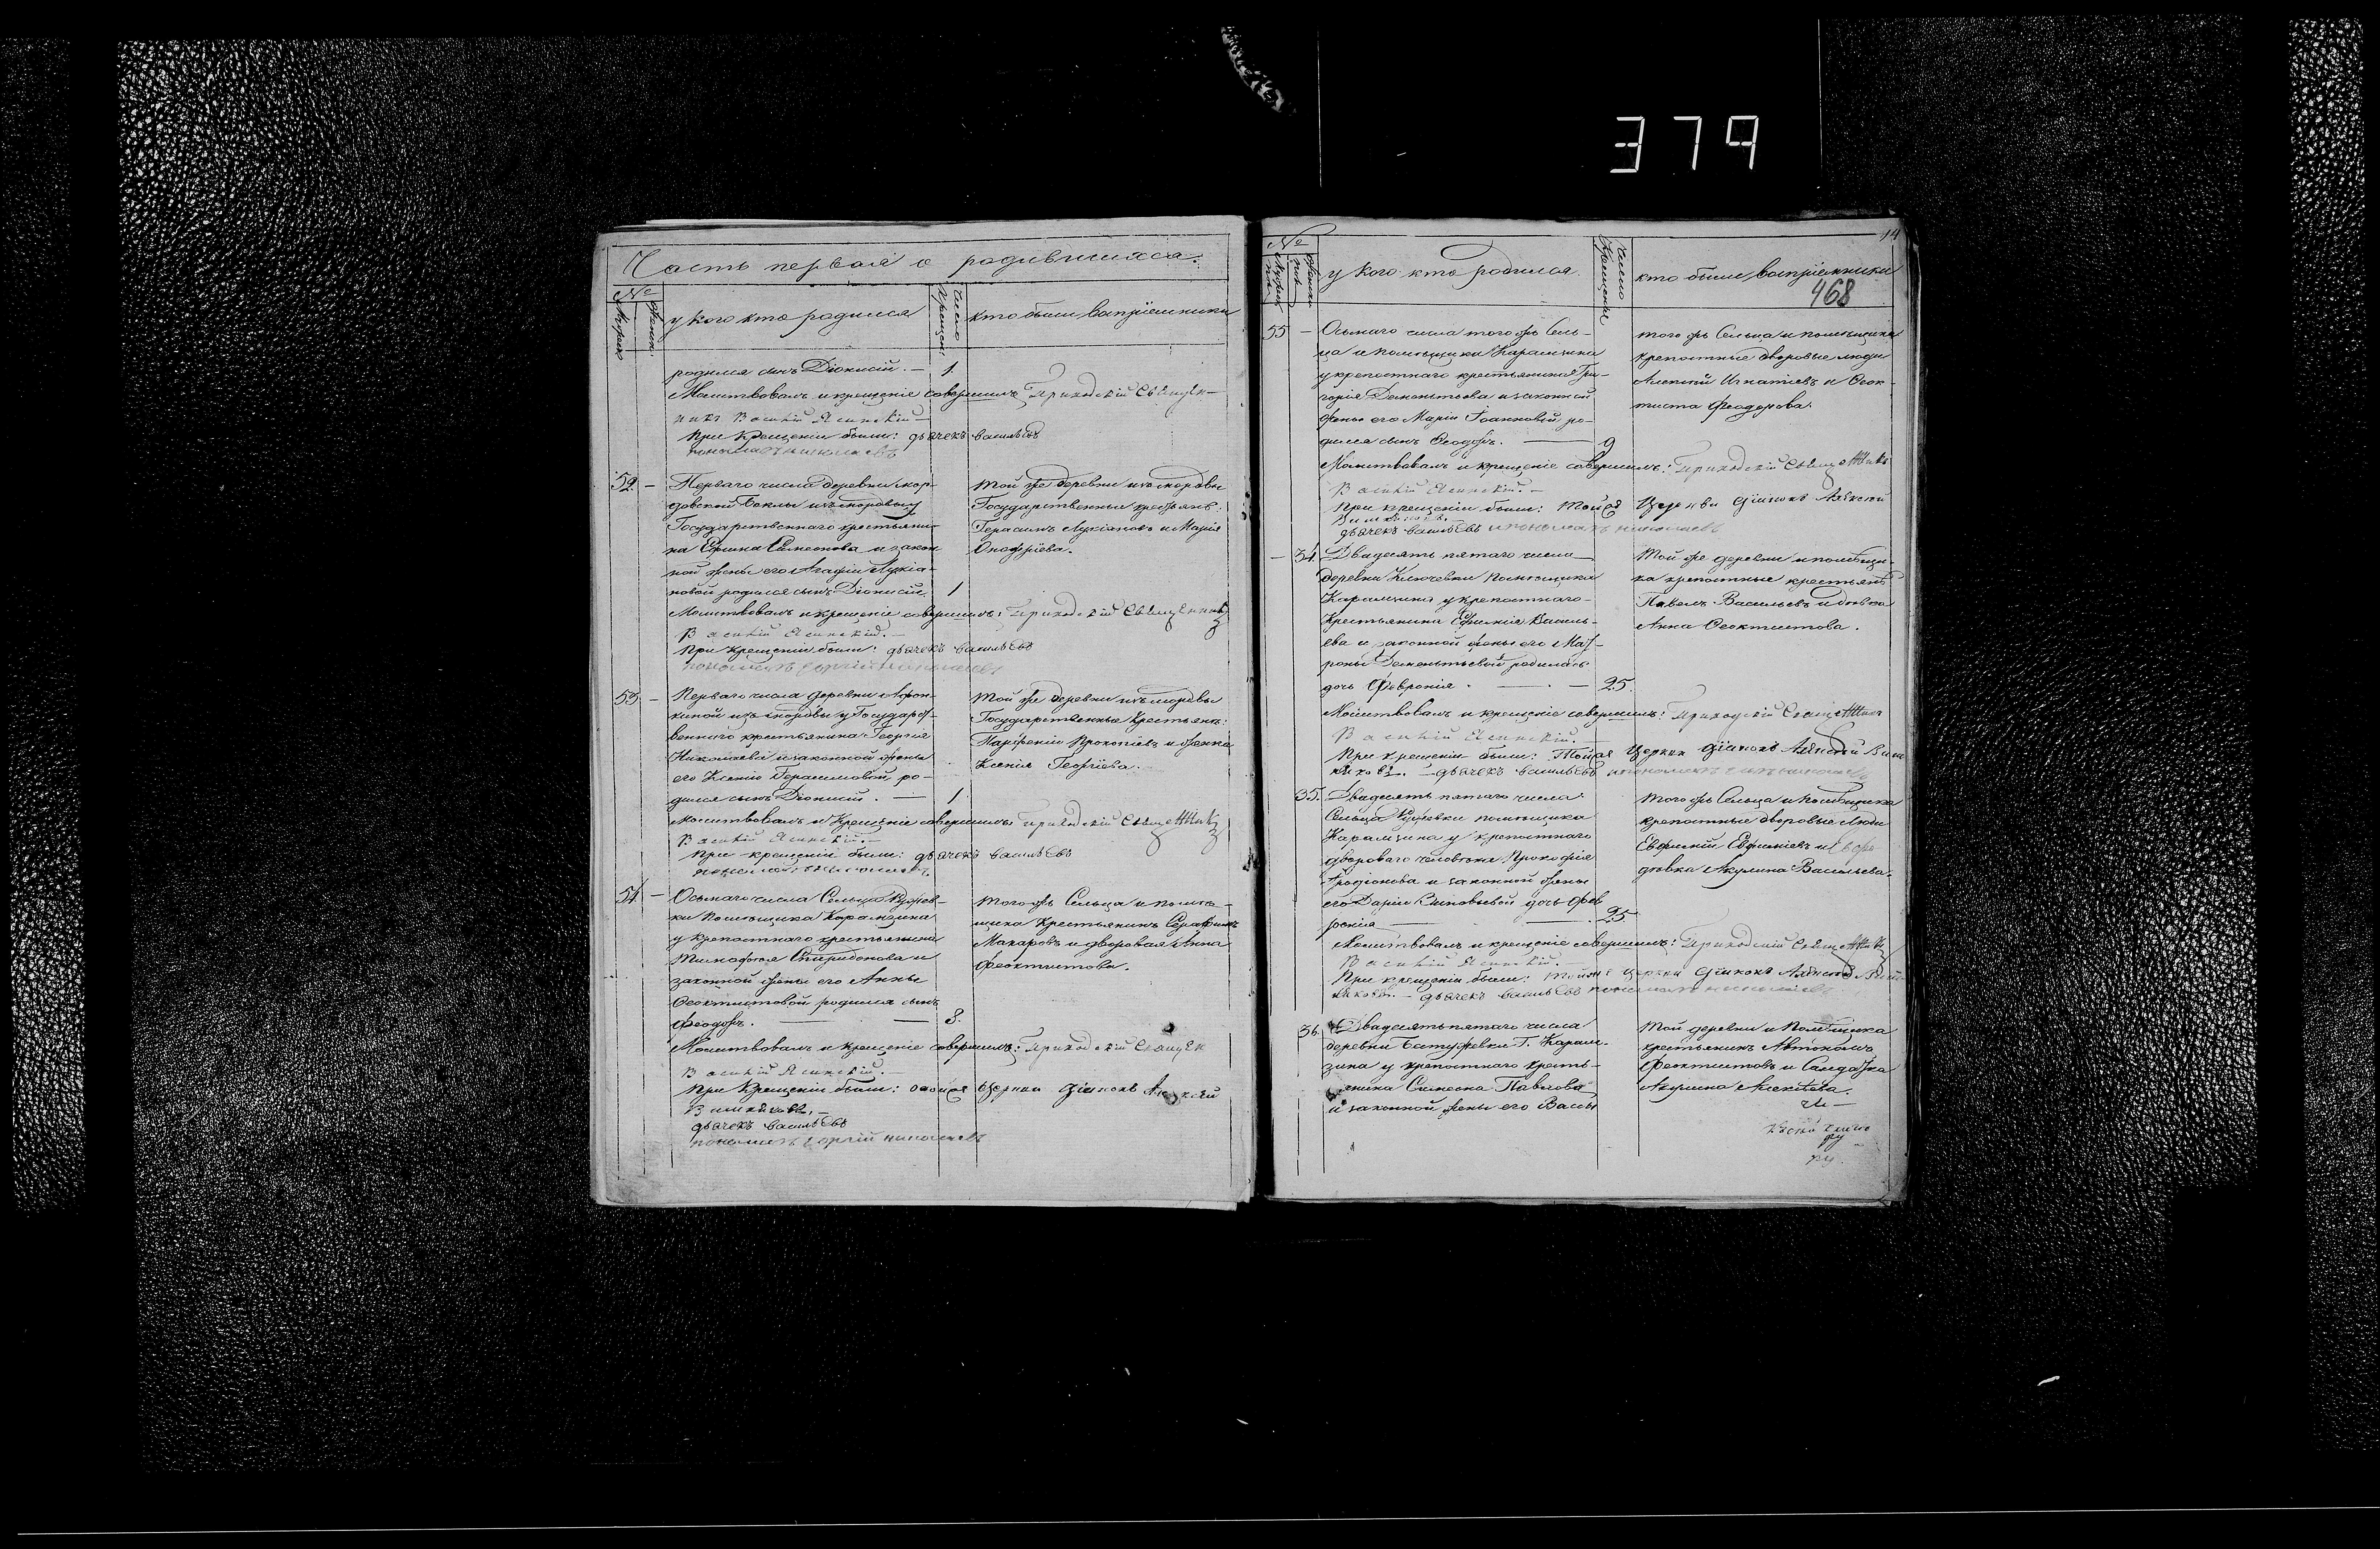 379
Часть первая о родившихся.
№
Мужск.
Женск.
у кого кто родился
Число крещен.
кто были воспріемники
родился сынъ Діонисій. — 1.
Молитвовалъ и крещеніе совершилъ Приходскій Священ-
никъ
При крещеніи были: дьячекъ Васильевъ
пономарь Николаевъ
52. — Перваго числа деревни
Государственнаго крестьяни-
на Ефима Симеонова и закон
ной жены его Агафіи Лукіа-
новой родился сынъ Діонисій. 1
той же деревни изъ мордвы
Государственные крестьяне:
Герасимъ Лукіановъ и Марія
Онофріева.
Молитвовалъ и крещеніе совершилъ: Приходскій Священникъ
При крещеніи были: дьячекъ Васильевъ
пономарь Георгій Николаевъ
53. — Перваго числа деревни Афон-
киной изъ мордвы у Государст-
веннаго крестьянина Георгія
Николаева и законной жены
его Ксеніи Герасимовой ро-
дился сынъ Діонисій. — 1.
той же деревни изъ мордвы
Государственные Крестьяне:
Парфеній Прокопіевъ и женка
Ксенія Георгіева.
Молитвовалъ и Крещеніе совершилъ приходскій Священникъ
При крещеніи были: дьячекъ Васильевъ
пономарь Николаевъ
54. — Осьмаго числа Сельца
ки помѣщика Карамзина
у крепостнаго крестьянина
Тимофея Спиридонова и
законной жены его Анны
Феоктистовой родился сынъ
Феодоръ. — 8.
того жъ Сельца и помѣ-
щика Крестьянинъ Серафимъ
Макаровъ и дворовая Анна
Феоктистова.
Молитвовалъ и крещеніе совершилъ: Приходскій Священ
При Крещеніи были: Церкви Діаконъ
дьячекъ Васильевъ
пономарь Георгій Николаевъ
14
№
Мужск. пола
Женск. пола
у кого кто родился.
Число Крещенія
кто были воспріемники
468
55 — Осьмаго числа того жъ Сель-
ца и помѣщика Карамзина
у крепостнаго крестьянина Гри-
горія Дементьева и законной
жены его Маріи Іоанновой ро-
дился сынъ Феодоръ. — 9
того жъ Сельца и помѣщика
крепостные дворовые люди
Алексѣй Игнатіевъ и Феок-
тиста Феодорова.
Молитвовалъ и крещеніе совершилъ: Приходскій Священникъ
При крещеніи были: Тойже Церкви Діаконъ
дьячекъ Васильевъ и пономарь Николаевъ
— 34. Двадесять пятаго числа
деревни Ключевки помѣщика
Карамзина у крепостнаго
Крестьянина Ефимія Василь-
ева и законной жены его Мат-
роны Дементьевой родилась
дочь Февронія. — 25.
Той же деревни и помѣщи-
ка крепостные крестьяне
Павелъ Васильевъ и дѣвка
Анна Феоктистова.
Молитвовалъ и крещеніе совершилъ: Приходскій Священникъ
При крещеніи были: Тойже Церкви Діаконъ
дьячекъ Васильевъ
35. Двадесять пятаго числа
Сельца помѣщика
Карамзина у крепостнаго
двороваго человѣка Прокофія
Иродіонова и законной жены
его Даріи Зиновьевой дочь Фев
ронія — 25
того жъ Сельца и помѣщика
крепостные дворовые люди
Евфимій Евфиміевъ и
дѣвка Акулина Васильева.
Молитвовалъ и крещеніе совершилъ: Приходскій Священникъ
При крещеніи были: тойже церкви Діаконъ
дьячекъ Васильевъ пономарь Николаевъ
36. Двадесять пятаго числа
деревни Г. Карам-
зина у крепостнаго кресть-
янина Симеона Павлова
и законной жены его Вассы
той деревни и Помѣщика
крестьянинъ Автономъ
Феоктистовъ и Солдатка
Акулина